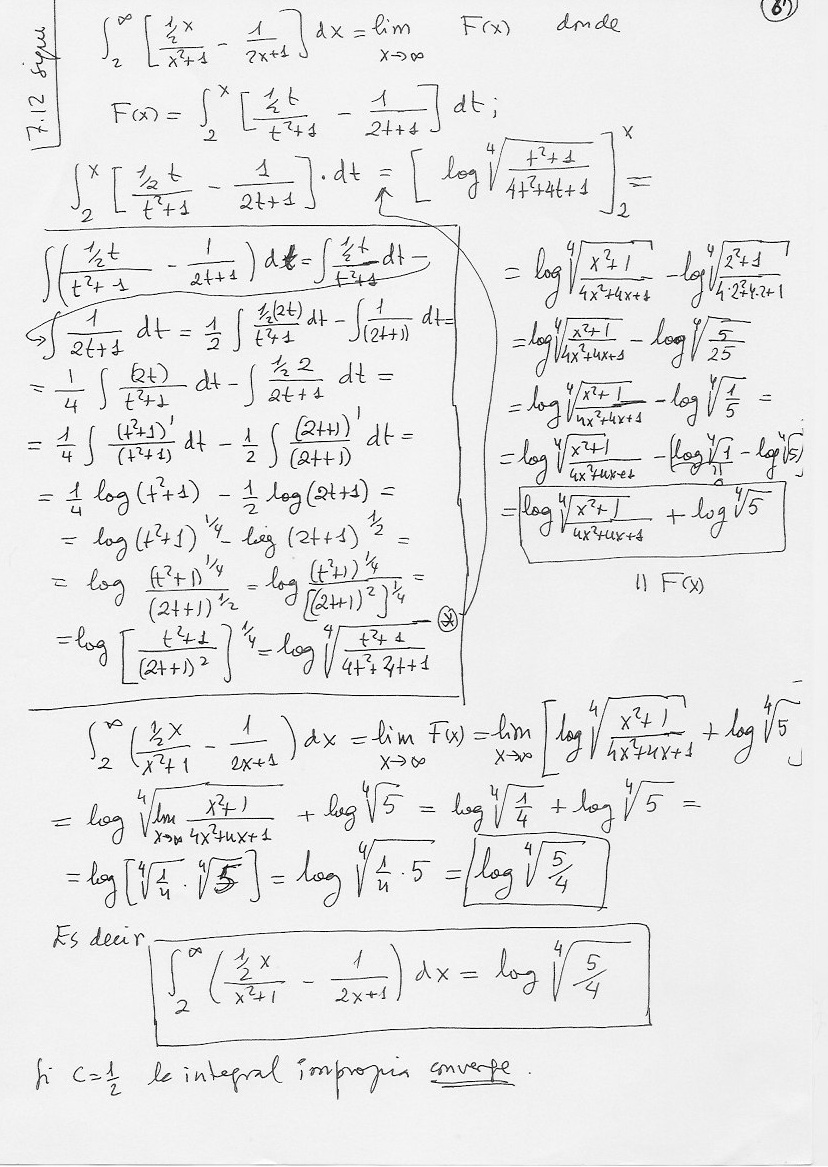 6')
7.12 sigue
∫_2^∞ [ (½x)/(x²+1) - 1/(2x+1) ] dx = lim_{x→∞} F(x) donde
F(x) = ∫_2^x [ (½t)/(t²+1) - 1/(2t+1) ] dt;
∫_2^x [ (½t)/(t²+1) - 1/(2t+1) ]·dt = [ log ⁴√((t²+1)/(4t²+4t+1)) ]_2^x =
∫( (½t)/(t²+1) - 1/(2t+1) ) dt = ∫ (½t)/(t²+1) dt -
∫ 1/(2t+1) dt = 1/2 ∫ (½(2t))/(t²+1) dt - ∫ 1/(2t+1) dt =
= 1/4 ∫ (2t)/(t²+1) dt - ∫ (½ 2)/(2t+1) dt =
= 1/4 ∫ (t²+1)'/(t²+1) dt - 1/2 ∫ (2t+1)'/(2t+1) dt =
= 1/4 log(t²+1) - 1/2 log(2t+1) =
= log(t²+1)^{1/4} - log(2t+1)^{1/2} =
= log (t²+1)^{1/4}/(2t+1)^{1/2} = log (t²+1)^{1/4}/[(2t+1)²]^{1/4} =
= log [ (t²+1)/(2t+1)² ]^{1/4} = log ⁴√((t²+1)/(4t²+4t+1)) (*)
= log ⁴√((x²+1)/(4x²+4x+1)) - log ⁴√((2²+1)/(4·2²+4·2+1))
= log ⁴√((x²+1)/(4x²+4x+1)) - log ⁴√(5/25)
= log ⁴√((x²+1)/(4x²+4x+1)) - log ⁴√(1/5) =
= log ⁴√((x²+1)/(4x²+4x+1)) - [log ⁴√1 - log ⁴√5]
0
= log ⁴√((x²+1)/(4x²+4x+1)) + log ⁴√5
|| F(x)
∫_2^∞ ( (½x)/(x²+1) - 1/(2x+1) ) dx = lim_{x→∞} F(x) = lim_{x→∞} [ log ⁴√((x²+1)/(4x²+4x+1)) + log ⁴√5 ]
= log ⁴√(lim_{x→∞} (x²+1)/(4x²+4x+1)) + log ⁴√5 = log ⁴√(1/4) + log ⁴√5 =
= log [ ⁴√(1/4) · ⁴√5 ] = log ⁴√(1/4 · 5) = log ⁴√(5/4)
Es decir
∫_2^∞ ( (½x)/(x²+1) - 1/(2x+1) ) dx = log ⁴√(5/4)
Si C=1/2 la integral impropia converge.